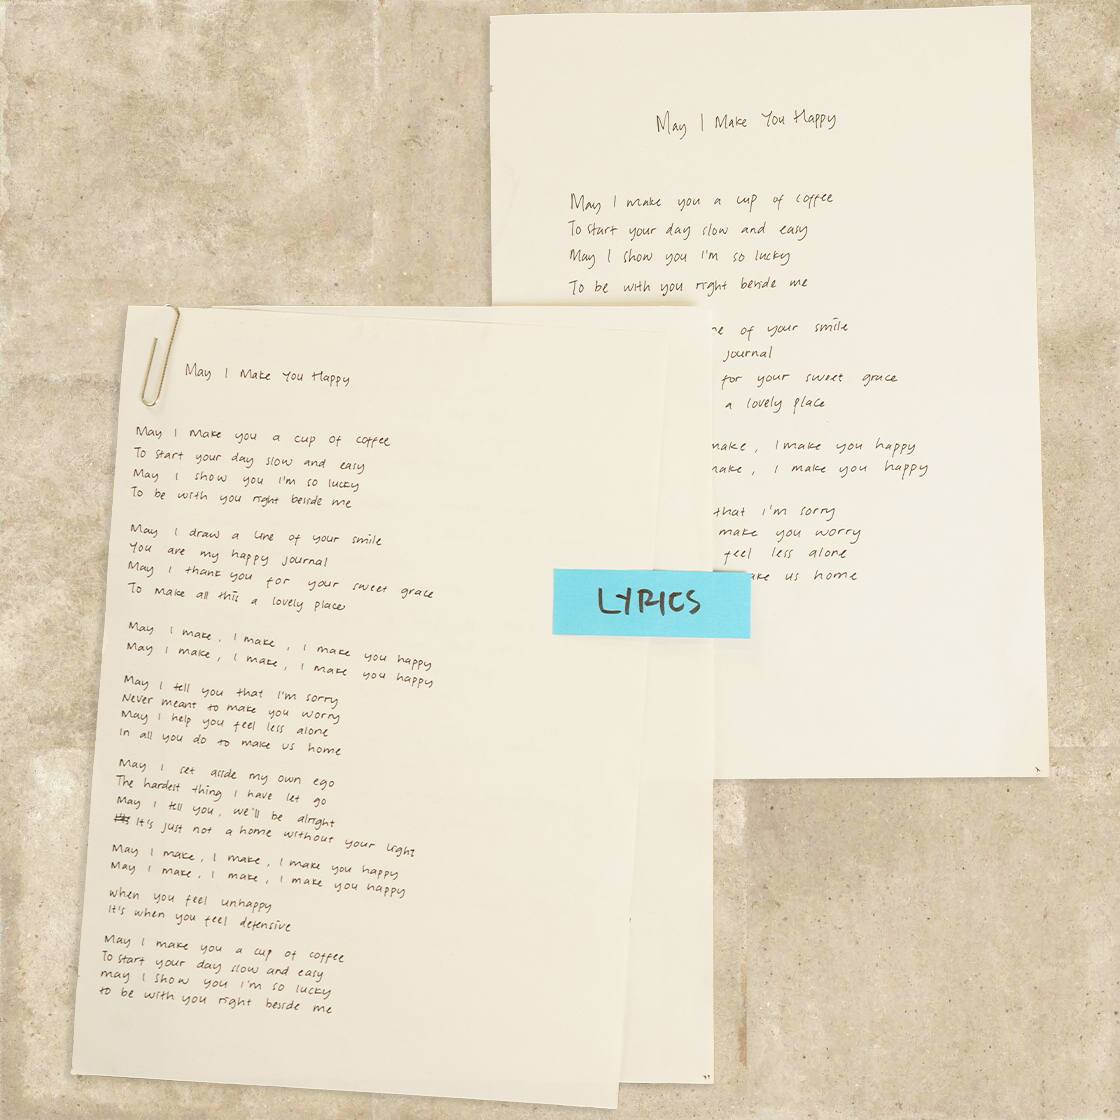 May I Make You Happy
May I make you a cup of coffee
To start your day slow and easy
May I show you I'm so lucky
To be with you right beside me
ne of your smile
journal
for your sweet grace
a lovely place
make, I make you happy
make, I make you happy
that I'm sorry
make you worry
feel less alone
ake us home
LYRICS
May I Make You Happy
May I make you a cup of coffee
To start your day slow and easy
May I show you I'm so lucky
To be with you right beside me
May I draw a line of your smile
You are my happy journal
May I thank you for your sweet grace
To make all this a lovely place
May I make, I make, I make you happy
May I make, I make, I make you happy
May I tell you that I'm sorry
Never meant to make you worry
May I help you feel less alone
In all you do to make us home
May I set aside my own ego
The hardest thing I have let go
May I tell you, we'll be alright
It's just not a home without your light
May I make, I make, I make you happy
May I make, I make, I make you happy
when you feel unhappy
It's when you feel defensive
May I make you a cup of coffee
To start your day slow and easy
may I show you I'm so lucky
to be with you right beside me